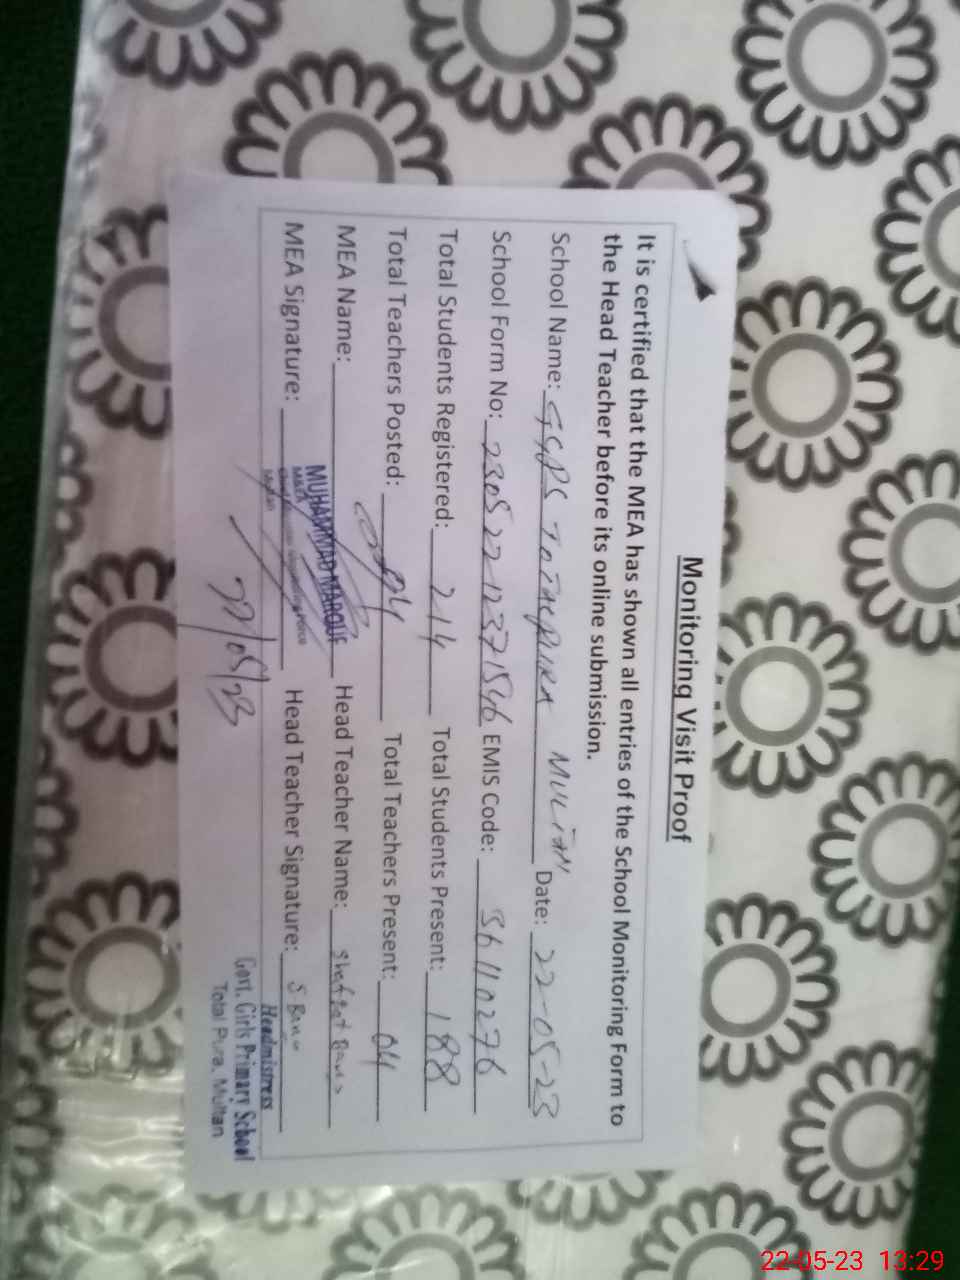 Monitoring Visit Proof
It is certified that the MEA has shown all entries of the School Monitoring Form to
the Head Teacher before its online submission.
School Name: GGPS TOTALPURA MULTAN Date: 22-05-23
School Form No: EMIS Code: 36110276
Total Students Registered: 214 Total Students Present: 188
Total Teachers Posted: 04 Total Teachers Present: 04
MEA Name: MUHAMMAD MAROUF Head Teacher Name: Shafqat Bano
MEA Signature: Head Teacher Signature: S Bano
M&EA
Multan
22/05/23
Headmistress
Govt. Girls Primary School
Total Pura, Multan
22-05-23 13:29